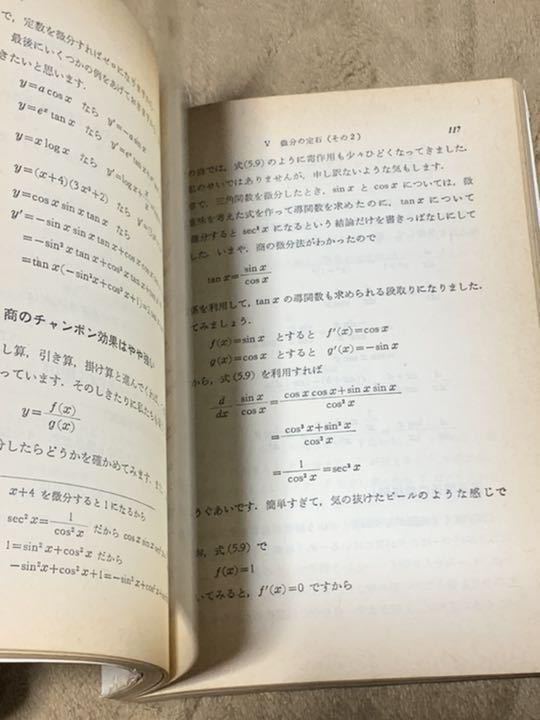 で，定数を微分すればゼロになり
最後にいくつかの例をあげておきま
きたいと思います．
y=a cos x なら y'=-a sin x
y=eˣ tan x なら y'=eˣ tan
y=x log x なら y'=log x+
y=(x+4)(3x²+2) なら
y=cos x sin x tan x なら
y'=-sin x sin x tan x+cos x cos
=-sin²x tan x+cos²x tan
=tan x(-sin²x+cos²x+1)
商のチャンポン効果はやや
し算，引き算，掛け算と進んで
っています．そのしきたりに私たち
y=f(x)/g(x)
分したらどうかを確かめてみます．
x+4 を微分すると1になるから
sec²x=1/cos²x だから cos x sin x
1=sin²x+cos²x だから
-sin²x+cos²x+1=-sin²x+cos²x
V 微分の定石（その2） 117
の商では，式(5.9)のように毒作用も少々ひどくなってきました．
私のせいではありませんが，申し訳ないような気もします．
章で，三角関数を微分したとき，sin x と cos x については，微
意味を考えた式を作って導関数を求めたのに，tan x について
微分すると sec²x になるという結論だけを書きっぱなしにして
した．いまや，商の微分法がわかったので
tan x=sin x/cos x
係を利用して，tan x の導関数も求められる段取りになりました．
てみましょう．
f(x)=sin x とすると f'(x)=cos x
g(x)=cos x とすると g'(x)=-sin x
から，式(5.9)を利用すれば
d/dx sin x/cos x=cos x cos x+sin x sin x/cos²x
=cos²x+sin²x/cos²x
=1/cos²x=sec²x
うぐあいです．簡単すぎて，気の抜けたビールのような感じで
，式(5.9)で
f(x)=1
いてみると，f'(x)=0 ですから